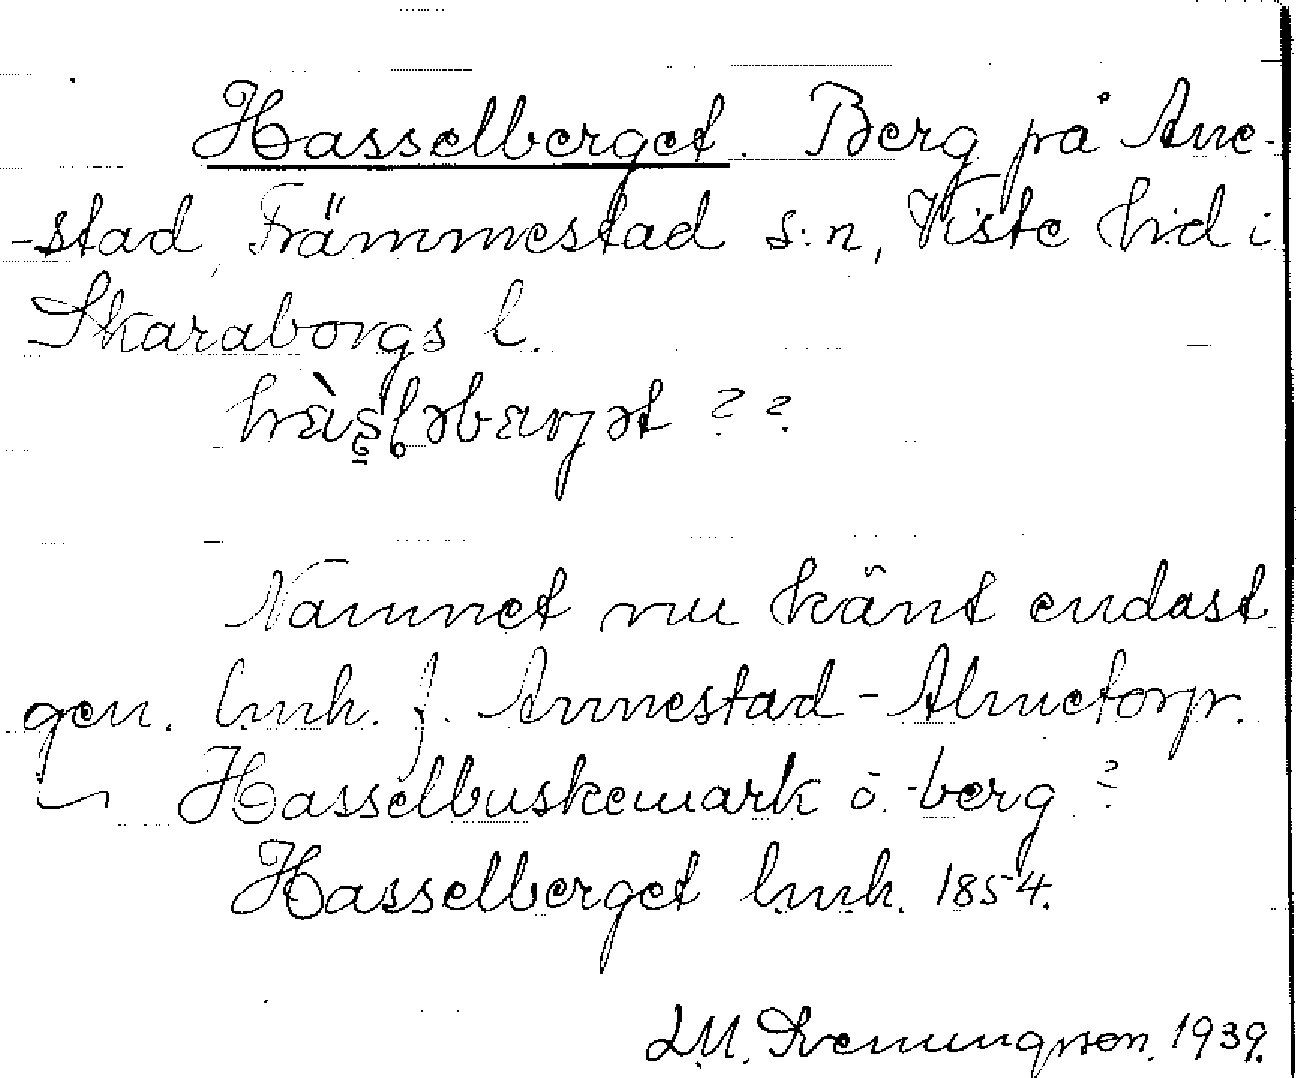 Hasselberget. Berg på Ane-
-stad, Främmestad s:n, Viste hd i
Skaraborgs l.
? ?
Namnet nu känt endast
gen. lmk. f. Annestad - Almetorp.
Hasselbuskemark o. -berg ?
Hasselberget lmk. 1854.
1939.